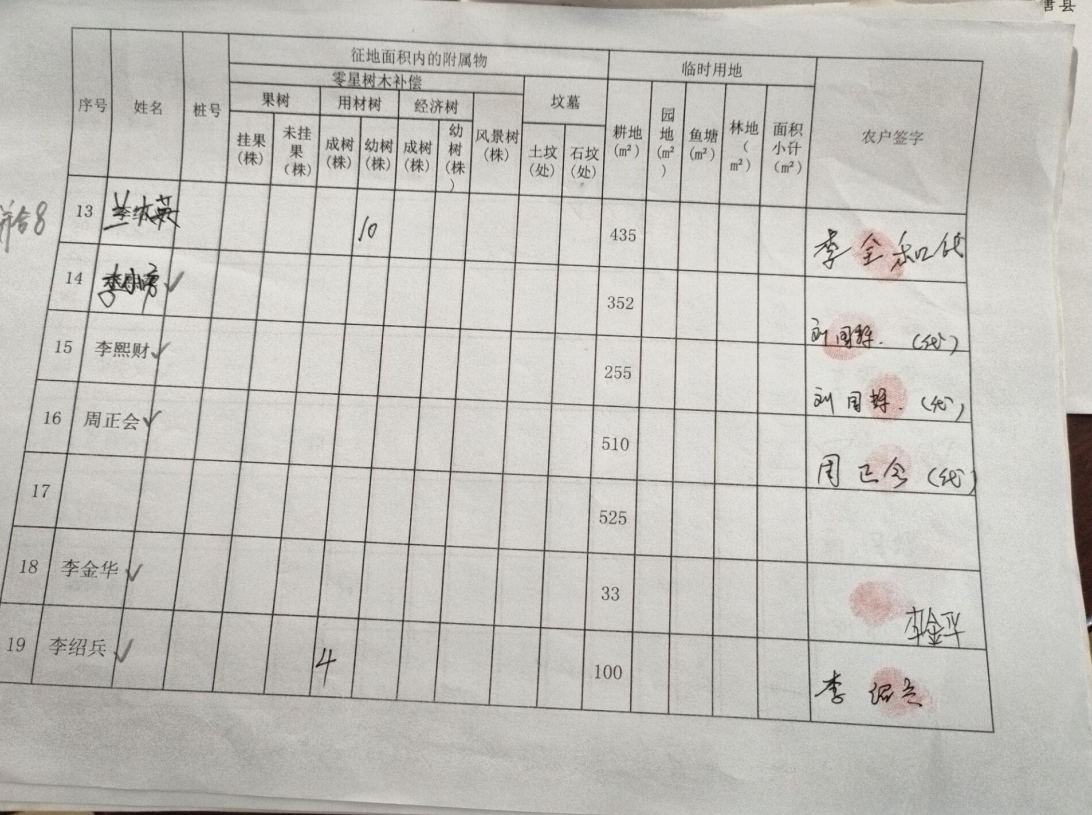 县
征地面积内的附属物 临时用地
零星树木补偿
序号 姓名 桩号 果树 用材树 经济树 风景树(株) 坟墓 耕地(m²) 园地(m²) 鱼塘(m²) 林地(m²) 面积小计(m²) 农户签字
挂果(株) 未挂果(株) 成树(株) 幼树(株) 成树(株) 幼树(株) 土坟(处) 石坟(处)
13 10 435 李全和代
14 352 刘国辉.(代)
15 李熙财 255 刘国辉.(代)
16 周正会 510 周正会(代)
17 525
18 李金华 33 李金平
19 李绍兵 4 100 李绍兵